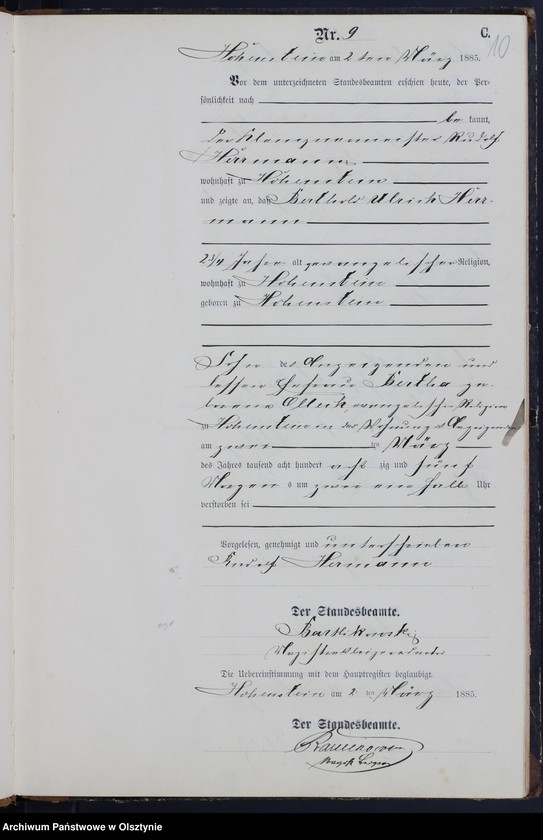 Nr. 9
C.
10
Hohenstein am 2 ten März 1885.
Vor dem unterzeichneten Standesbeamten erschien heute, der Per-
sönlichkeit nach
be kannt,
der Klempnermeister Rudolf
Herrmann
wohnhaft zu Hohenstein
und zeigte an, daß Berthold Ulrich Herr-
mann
2 3/4 Jahre alt, evangelischer Religion,
wohnhaft zu Hohenstein
geboren zu Hohenstein
Sohn des Anzeigenden und
dessen Ehefrau Bertha ge-
borene evangelischer Religion
zu Hohenstein in der Wohnung des Anzeigenden
am zwei ten März
des Jahres tausend acht hundert acht zig und fünf
Morgens um zwei ein halb Uhr
verstorben sei
Vorgelesen, genehmigt und unterschrieben
Rudolf Hermann
Der Standesbeamte.
Bartlikowski
Die Uebereinstimmung mit dem Hauptregister beglaubigt.
Hohenstein am 2 ten März 1885.
Der Standesbeamte.
Archiwum Państwowe w Olsztynie